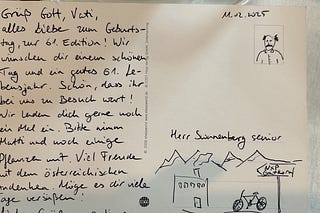 Grüß Gott, Vati,
alles Liebe zum Geburts-
tag, zur 61. Edition! Wir
wünschen dir einen schönen
Tag und ein gutes 61. Le-
bensjahr. Schön, dass ihr
bei uns zu Besuch wart!
Wir laden dich gerne noch
ein Mal ein. Bitte nimm
Mutti und noch einige
Pflanzen mit. Viel Freude
mit dem österreichischen
Andenken. Möge es dir viele
Tage versüßen!
11.02.2025
Herr Sünnenberg senior